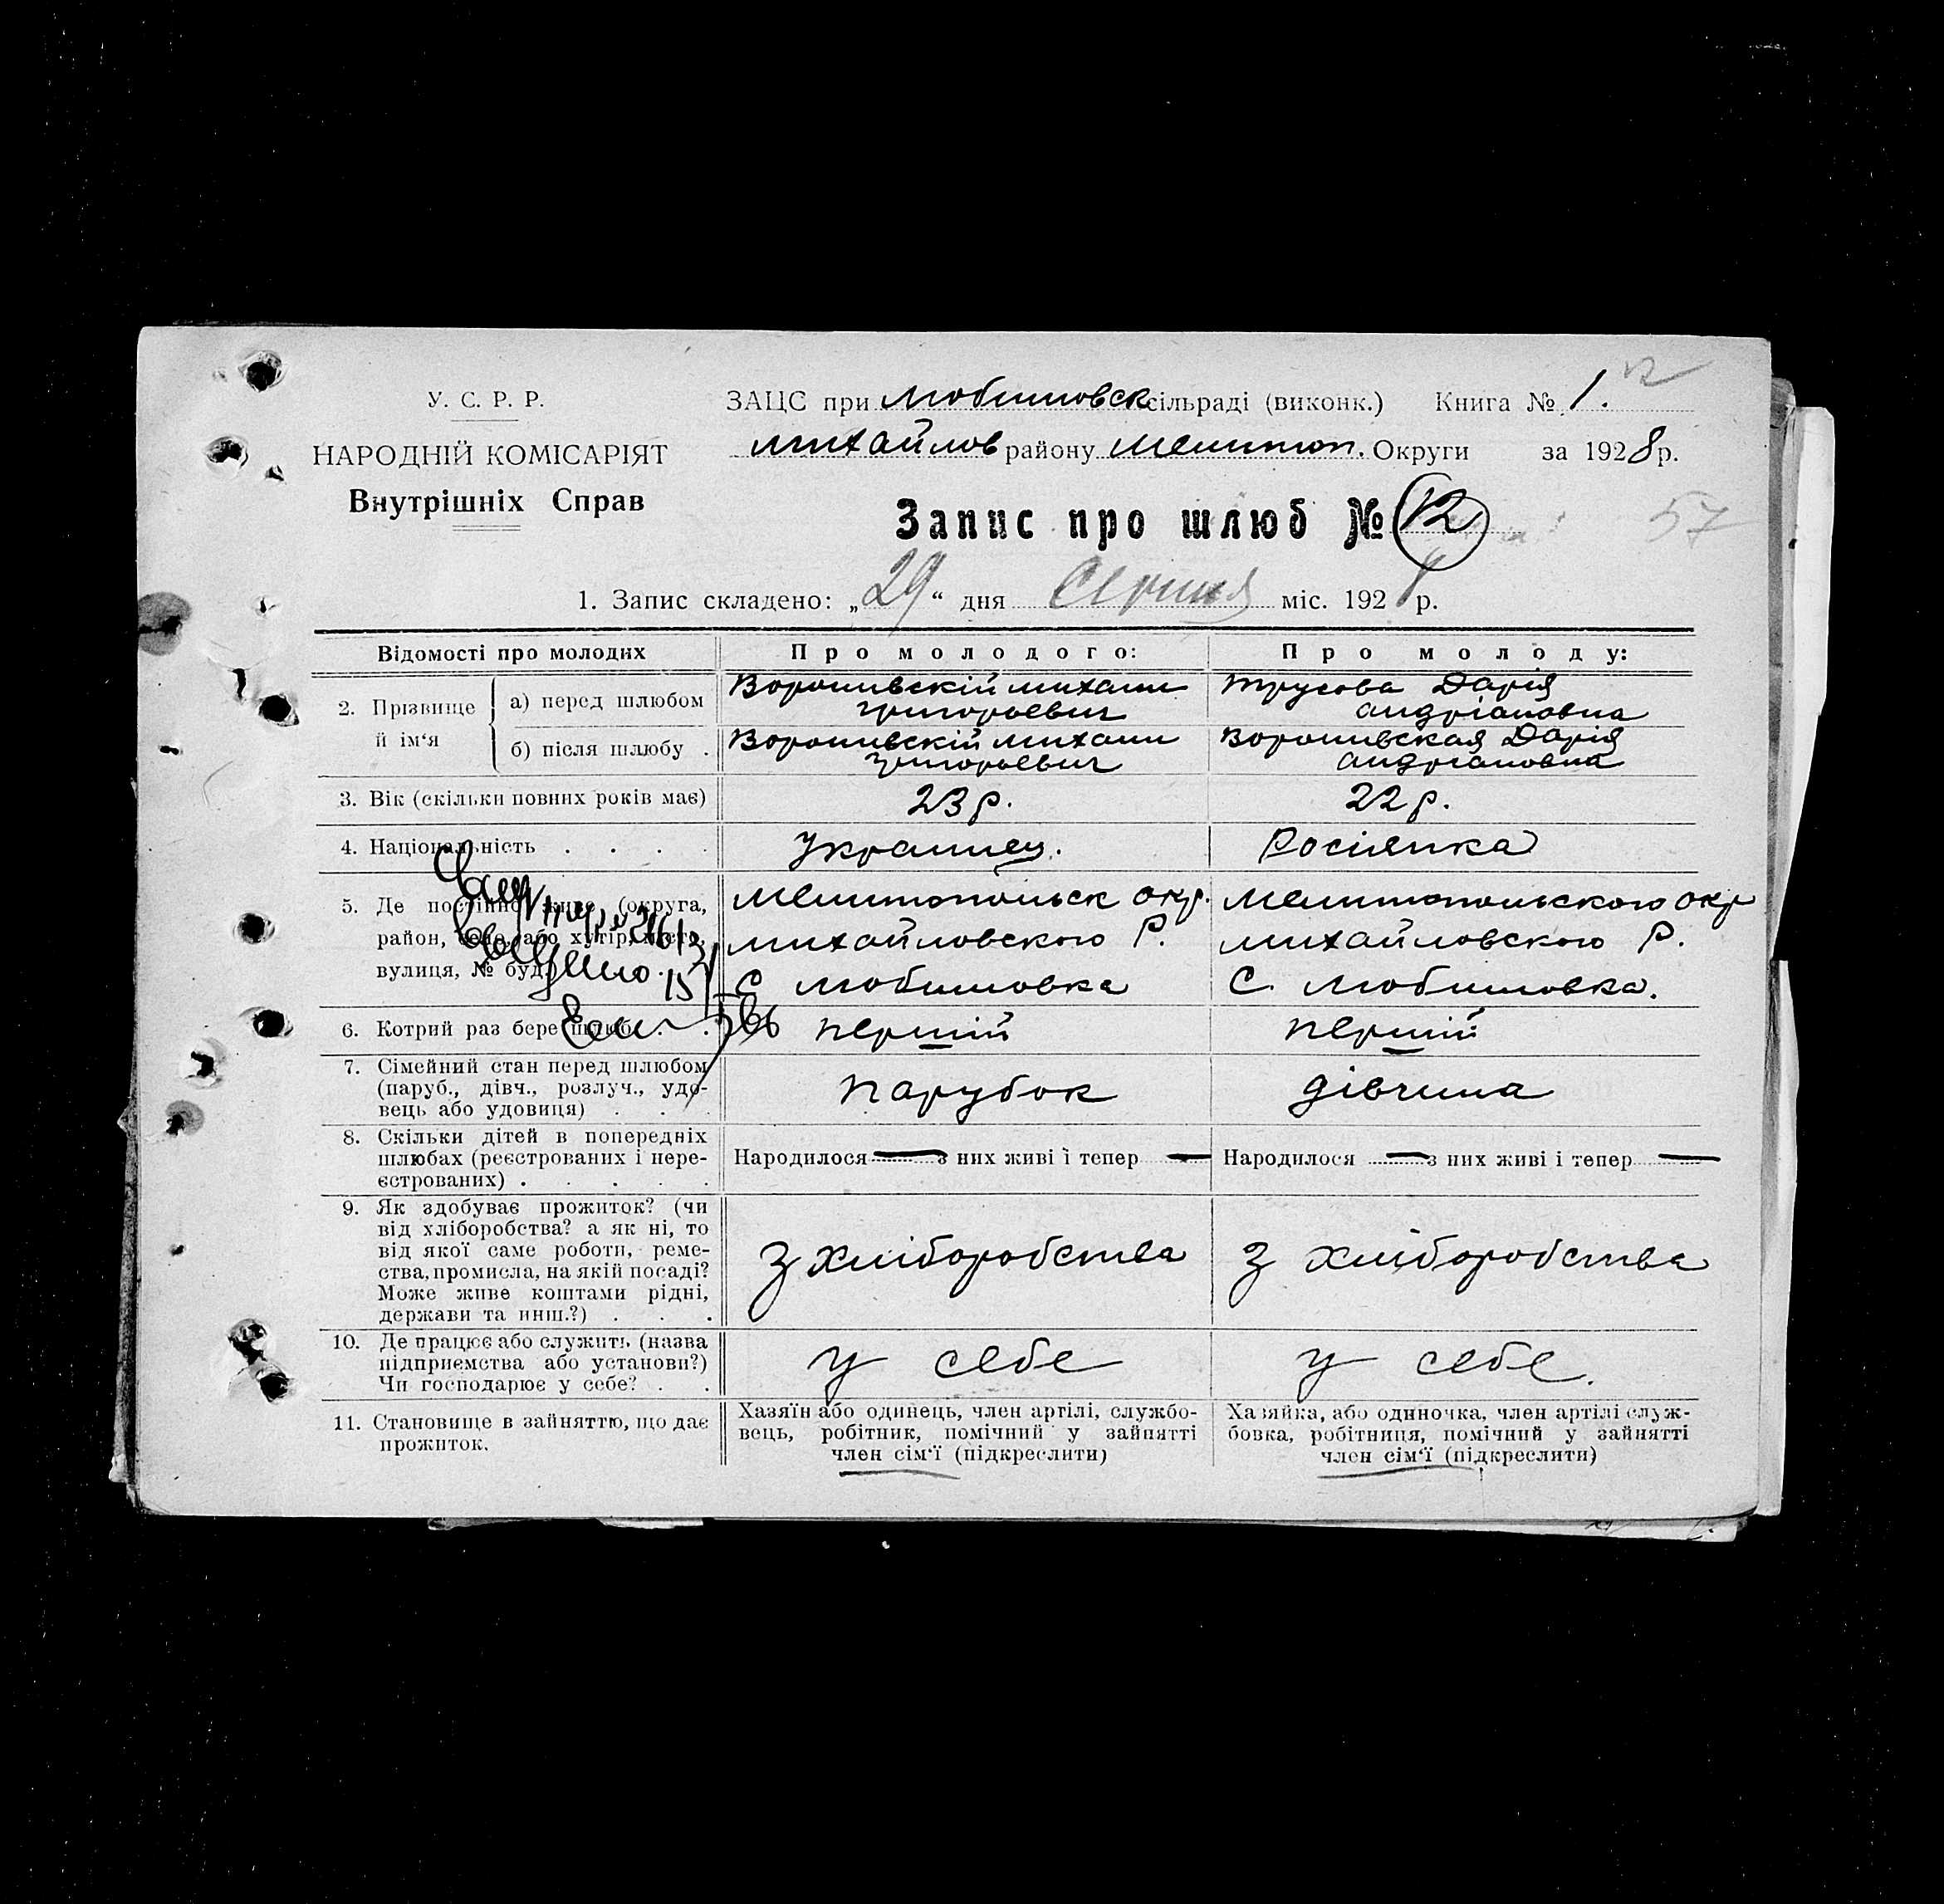 У. С. Р. Р.
НАРОДНІЙ КОМІСАРІЯТ
Внутрішніх Справ
ЗАЦС при Любимовск сільраді (виконк.) Книга № 1.
Михайлов району Мелитоп. Округи за 1928 р.
Запис про шлюб № 12
57
1. Запис складено: „29“ дня Серпня міс. 1928 р.
Відомості про молодих
Про молодого:
Про молоду:
2. Прізвище й ім‘я
а) перед шлюбом
Григорьевич
Трусова Дарія
Андріановна
б) після шлюбу .
Григорьевич
Дарія
Андріановна
3. Вік (скільки повних років має)
23 р.
22 р.
4. Національність . . . .
Украинец.
Росіянка
5. Де постійно живе (округа,
район, село, або хутір, місто,
вулиця, № буд.) .
Мелитопольск окр.
Михайловского Р.
С Любимовка
Мелитопольского окр
Михайловского Р.
С. Любимовка.
6. Котрий раз бере шлюб . .
перший
перший
7. Сімейний стан перед шлюбом
(паруб., дівч., розлуч., удо-
вець або удовиця) . . .
парубок
дівчина
8. Скільки дітей в попередніх
шлюбах (реєстрованих і нере-
єстрованих) . . . . .
Народилося — з них живі і тепер —
Народилося — з них живі і тепер —
9. Як здобуває прожиток? (чи
від хліборобства? а як ні, то
від якої саме роботи, реме-
ства, промисла, на якій посаді?
Може живе коштами рідні,
держави та инш.?) . . .
З хліборобства
З хліборобства
10. Де працює або служить (назва
підприємства або установи?)
Чи господарює у себе? . .
у себе
у себе.
11. Становище в зайняттю, що дає
прожиток.
Хазяїн або одинець, член артілі, службо-
вець, робітник, помічний у зайнятті
член сім‘ї (підкреслити)
Хазяйка, або одиночка, член артілі служ-
бовка, робітниця, помічний у зайнятті
член сім‘ї (підкреслити)